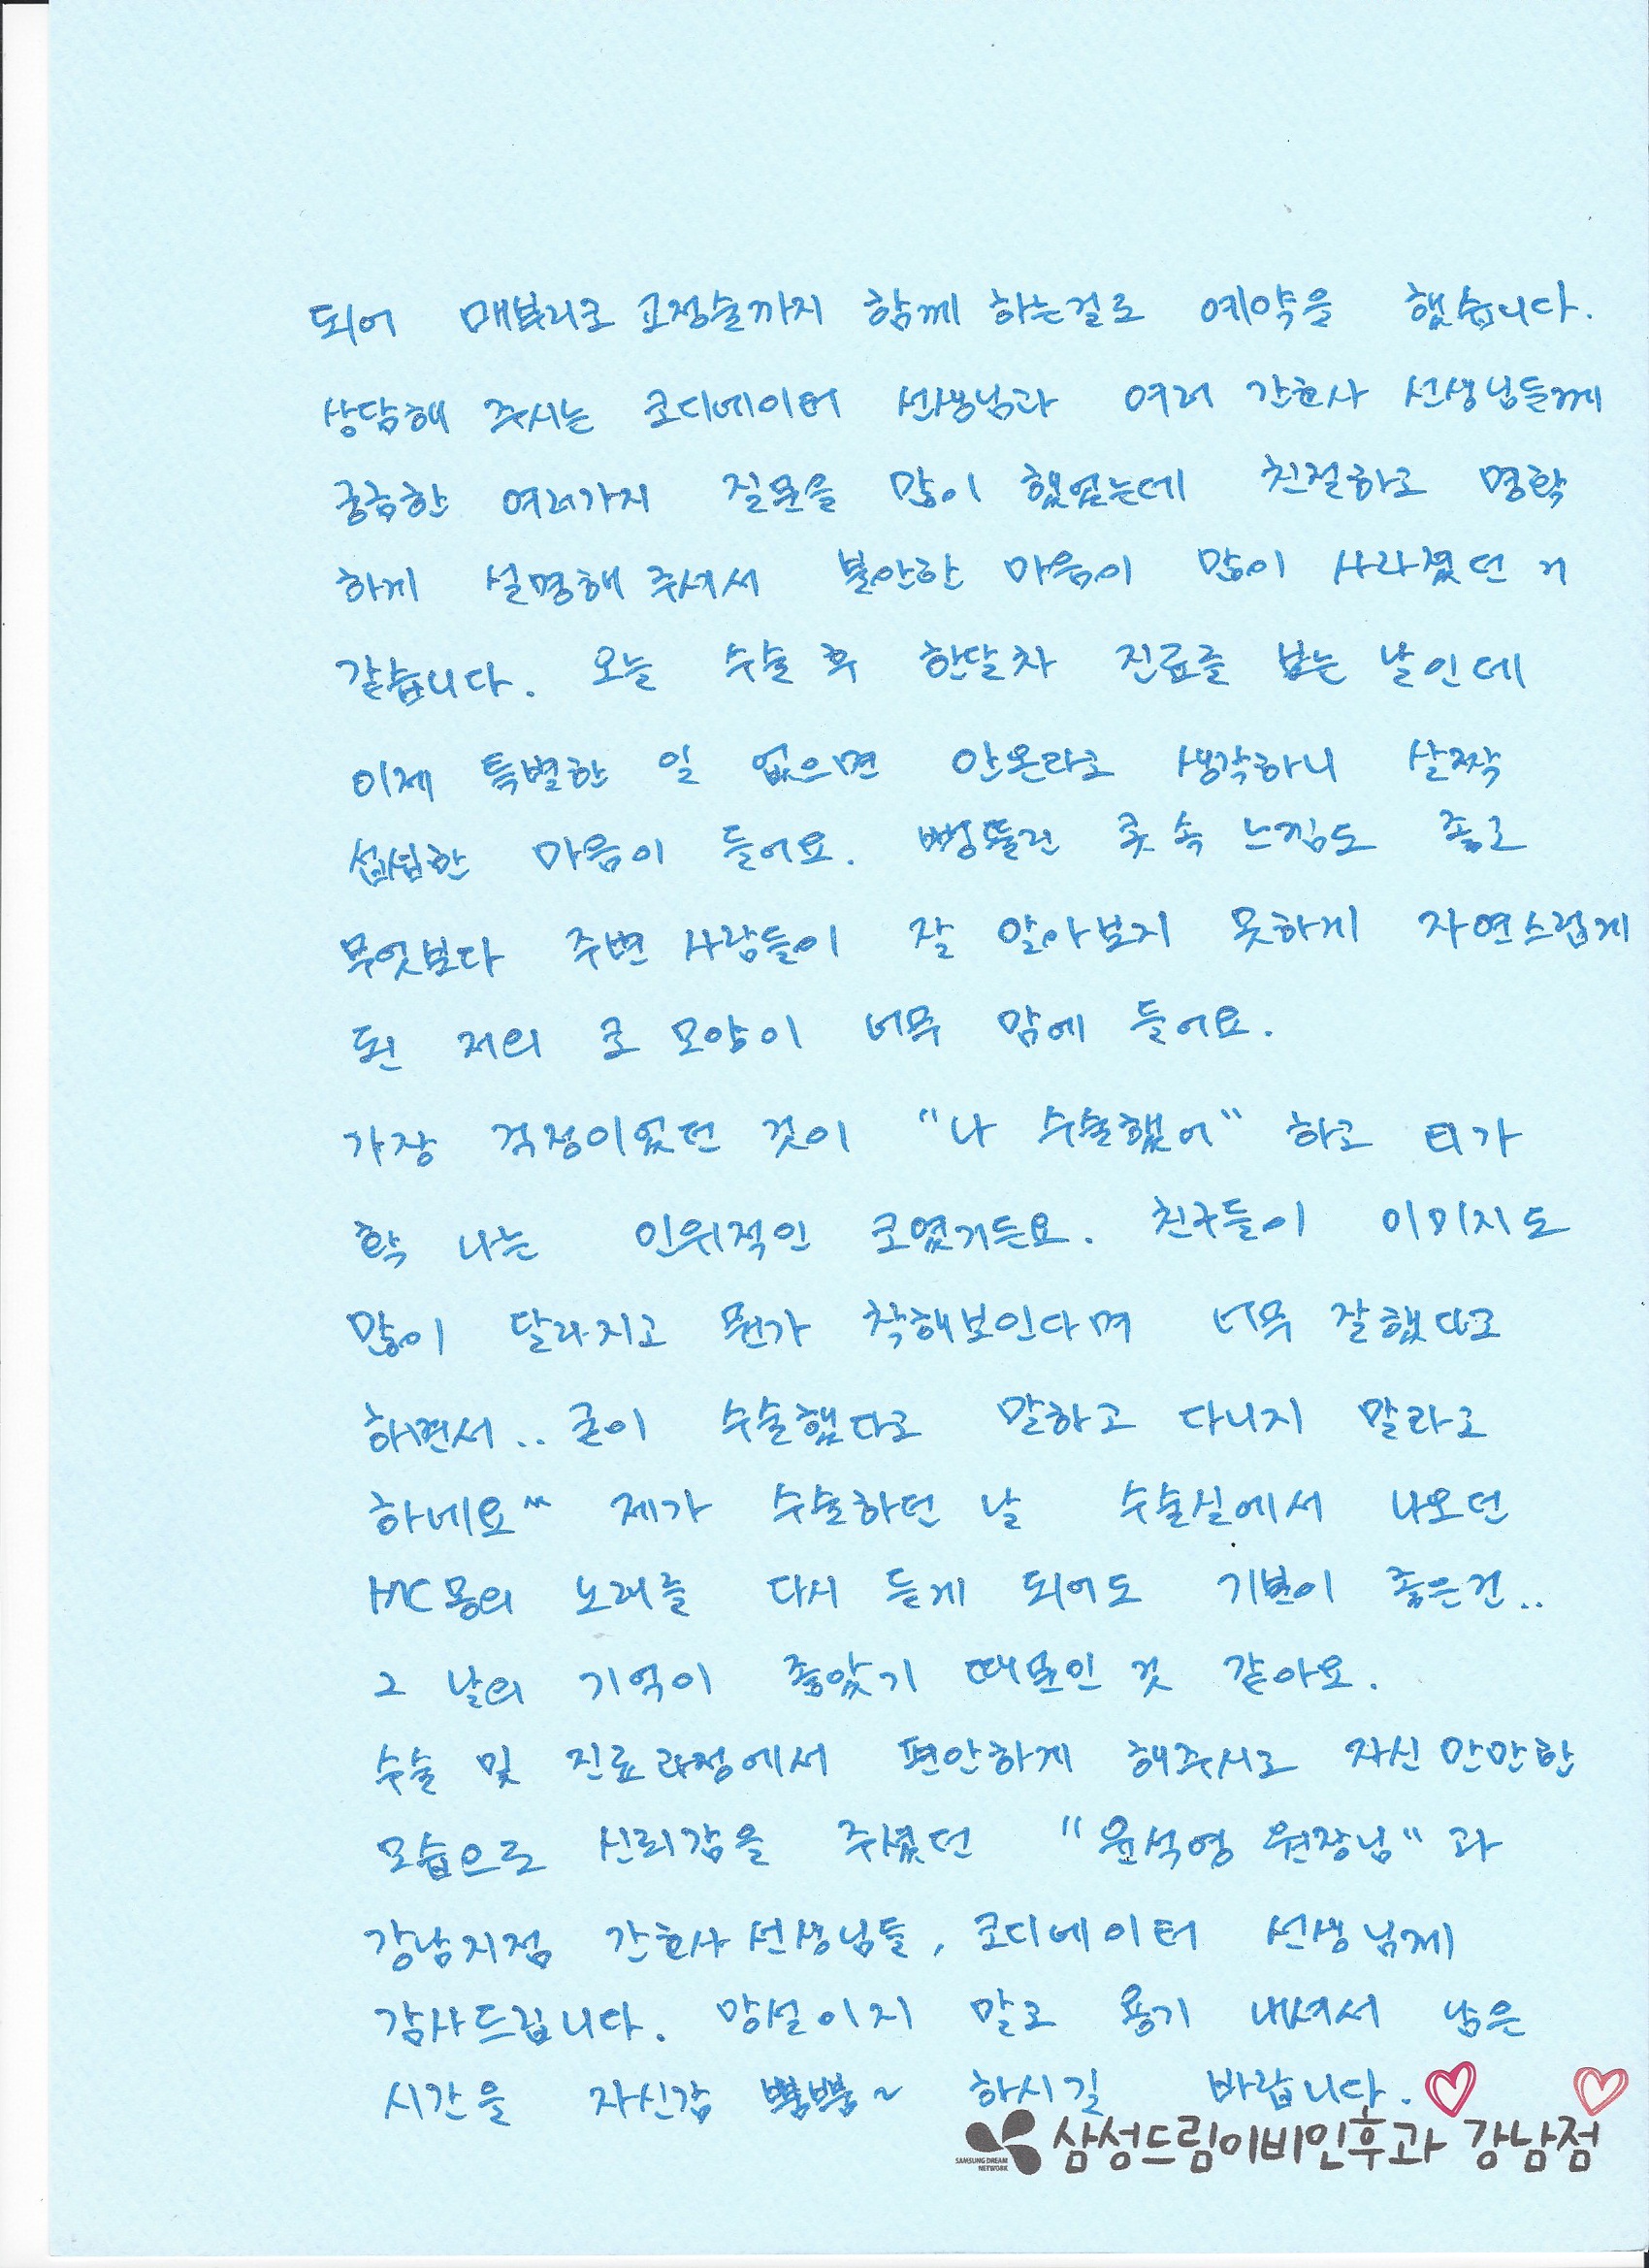 되어 매부리코 교정술까지 함께 하는걸로 예약을 했습니다.
상담해 주시는 코디네이터 선생님과 여러 간호사 선생님들께
궁금한 여러가지 질문을 많이 했었는데 친절하고 명확
하게 설명해 주셔서 불안한 마음이 많이 사라졌던 거
같습니다. 오늘 수술 후 한달차 진료를 보는 날인데
이제 특별한 일 없으면 안온다고 생각하니 살짝
섭섭한 마음이 들어요. 뻥뚫린 콧 속 느낌도 좋고
무엇보다 주변 사람들이 잘 알아보지 못하게 자연스럽게
된 저의 코 모양이 너무 맘에 들어요.
가장 걱정이었던 것이 "나 수술했어" 하고 티가
확 나는 인위적인 코였거든요. 친구들이 이미지도
많이 달라지고 뭔가 착해보인다며 너무 잘했다고
하면서.. 굳이 수술했다고 말하고 다니지 말라고
하네요^^ 제가 수술하던 날 수술실에서 나오던
MC몽의 노래를 다시 듣게 되어도 기분이 좋은건..
그 날의 기억이 좋았기 때문인 것 같아요.
수술 및 진료과정에서 편안하게 해주시고 자신만만한
모습으로 신뢰감을 주셨던 "윤석영 원장님"과
강남지점 간호사 선생님들, 코디네이터 선생님께
감사드립니다. 망설이지 말고 용기 내셔서 남은
시간을 자신감 뿜뿜~ 하시길 바랍니다.
SAMSUNG DREAM NETWORK 삼성드림이비인후과 강남점